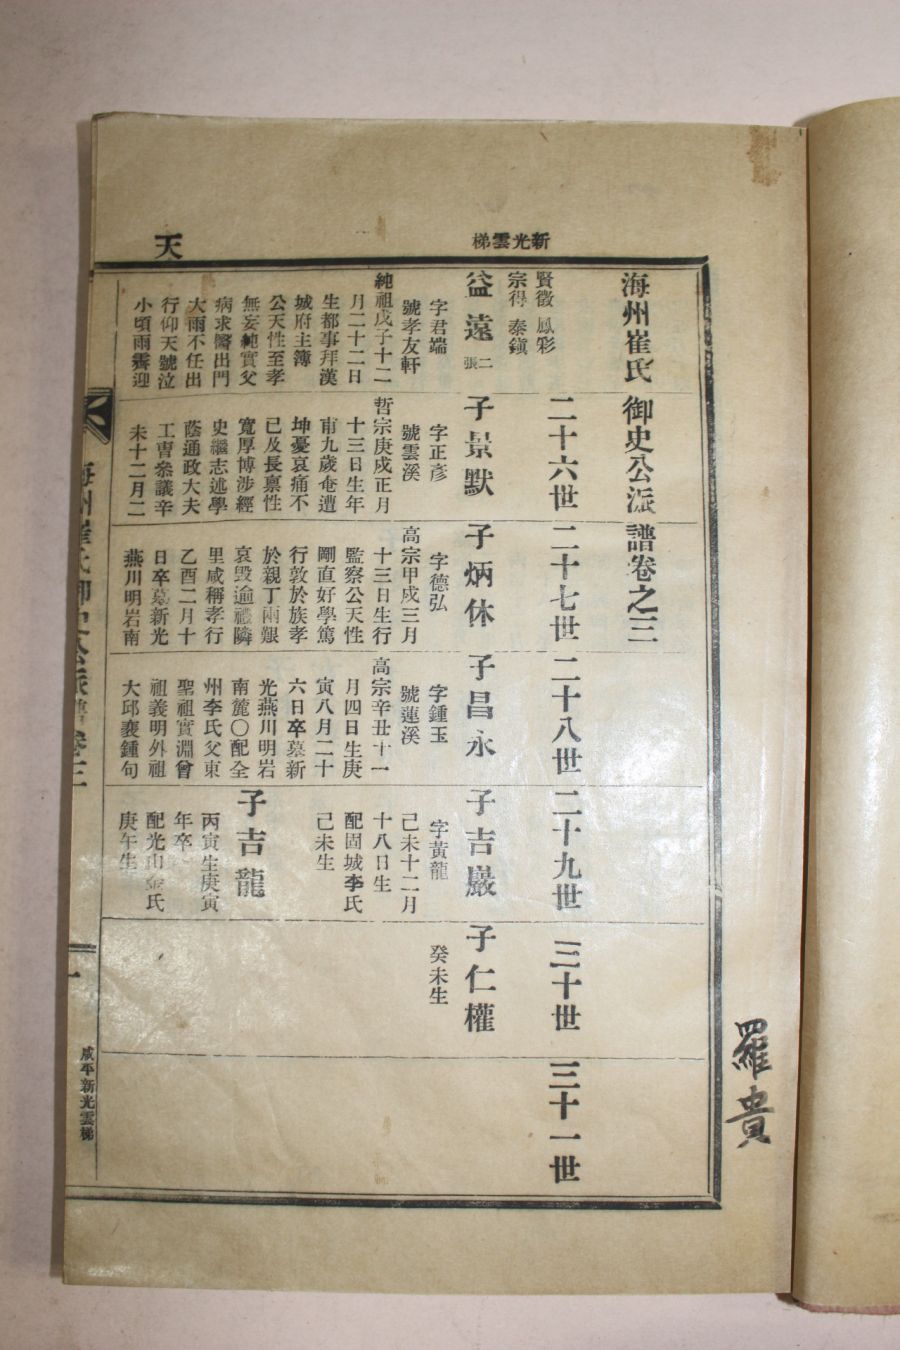 天
新光雲梯
海州崔氏御史公派譜卷之三
賢徵 鳳彩
宗得 泰鎭
二十六世
二十七世
二十八世
二十九世
三十世
三十一世
益遠 二張
字君端
號孝友軒
純祖戊子十二
月二十二日
生都事拜漢
城府主簿
公天性至孝
無妄純實父
病求醫出門
大雨不任出
行仰天號泣
小頃雨霽迎
子景默
字正彦
號雲溪
哲宗庚戌正月
十三日生年
甫九歲奄遭
坤憂哀痛不
已及長禀性
寬厚博涉經
史繼志述學
蔭通政大夫
工曺參議辛
未十二月二
子炳休
字德弘
高宗甲戌三月
十三日生行
監察公天性
剛直好學篤
行敦於族孝
於親丁兩艱
哀毁逾禮隣
里咸稱孝行
乙酉二月十
日卒墓新光
燕川明岩南
子昌永
字鍾玉
號蓮溪
高宗辛丑十一
月四日生庚
寅八月二十
六日卒墓新
光燕川明岩
南麓〇配全
州李氏父東
聖祖實淵曾
祖義明外祖
大邱裵鍾句
子吉巖
字黃龍
己未十二月
十八日生
配固城李氏
己未生
子吉龍
丙寅生庚寅
年卒
配光山金氏
庚午生
子仁權
癸未生
海州崔氏御史公派譜卷三
一
咸平新光雲梯
羅貴